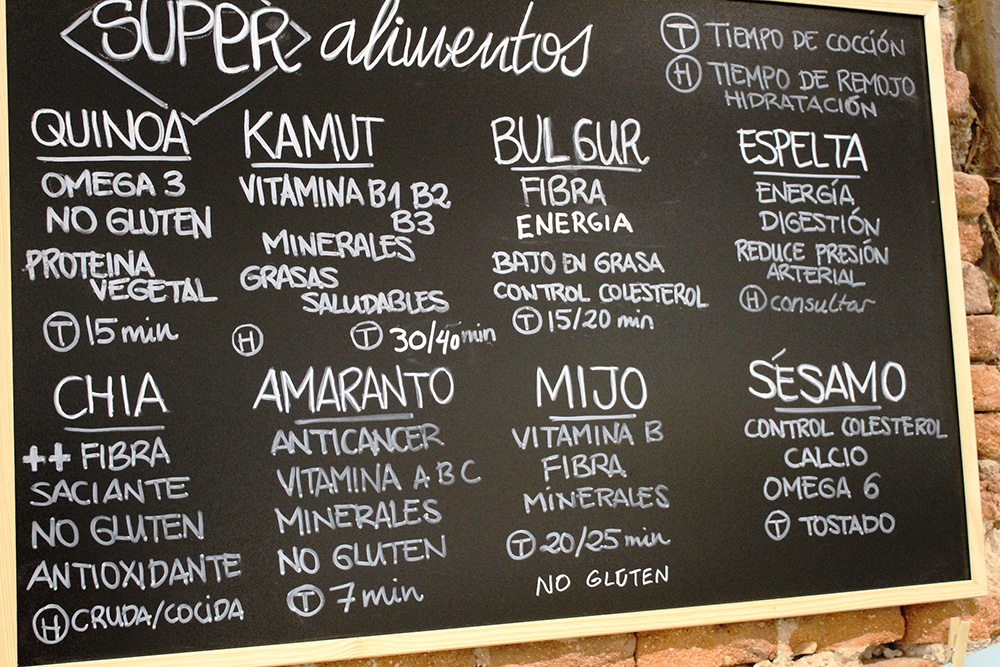 SUPER alimentos
Ⓣ TIEMPO DE COCCIÓN
Ⓗ TIEMPO DE REMOJO
HIDRATACIÓN
QUINOA
OMEGA 3
NO GLUTEN
PROTEINA
VEGETAL
Ⓣ 15 min
KAMUT
VITAMINA B1 B2
B3
MINERALES
GRASAS
SALUDABLES
Ⓗ Ⓣ 30/40 min
BULGUR
FIBRA
ENERGIA
BAJO EN GRASA
CONTROL COLESTEROL
Ⓣ 15/20 min
ESPELTA
ENERGÍA
DIGESTIÓN
REDUCE PRESIÓN
ARTERIAL
Ⓗ consultar
CHIA
++ FIBRA
SACIANTE
NO GLUTEN
ANTIOXIDANTE
Ⓗ CRUDA/COCIDA
AMARANTO
ANTICANCER
VITAMINA A B C
MINERALES
NO GLUTEN
Ⓣ 7 min
MIJO
VITAMINA B
FIBRA
MINERALES
Ⓣ 20/25 min
NO GLUTEN
SÉSAMO
CONTROL COLESTEROL
CALCIO
OMEGA 6
Ⓣ TOSTADO